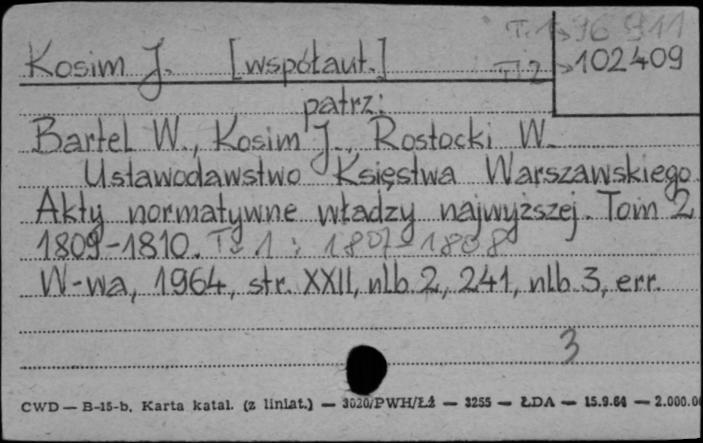 T. 1 → 96 911
Kosim J. [współaut.] T. 2 → 102409
patrz:
Bartel W., Kosim J., Rostocki W.
Ustawodawstwo Księstwa Warszawskiego.
Akty normatywne władzy najwyższej. Tom 2
1809-1810. T. 1 : 1807-1808
W-wa, 1964, str. XXII, nlb. 2, 241, nlb. 3, err.
3
CWD — B-15-b. Karta katal. (z liniat.) — 3020/PWH/ŁŻ — 3255 — ŁDA — 15.9.64 — 2.000.0